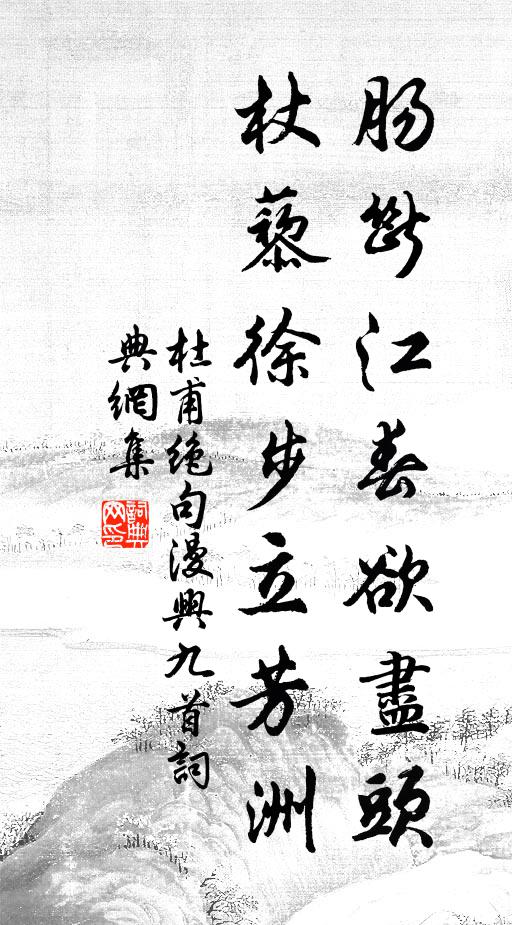 腸斷江春欲盡頭
杖藜徐步立芳洲
杜甫絕句漫興九首詞
典網集
詞典
网印